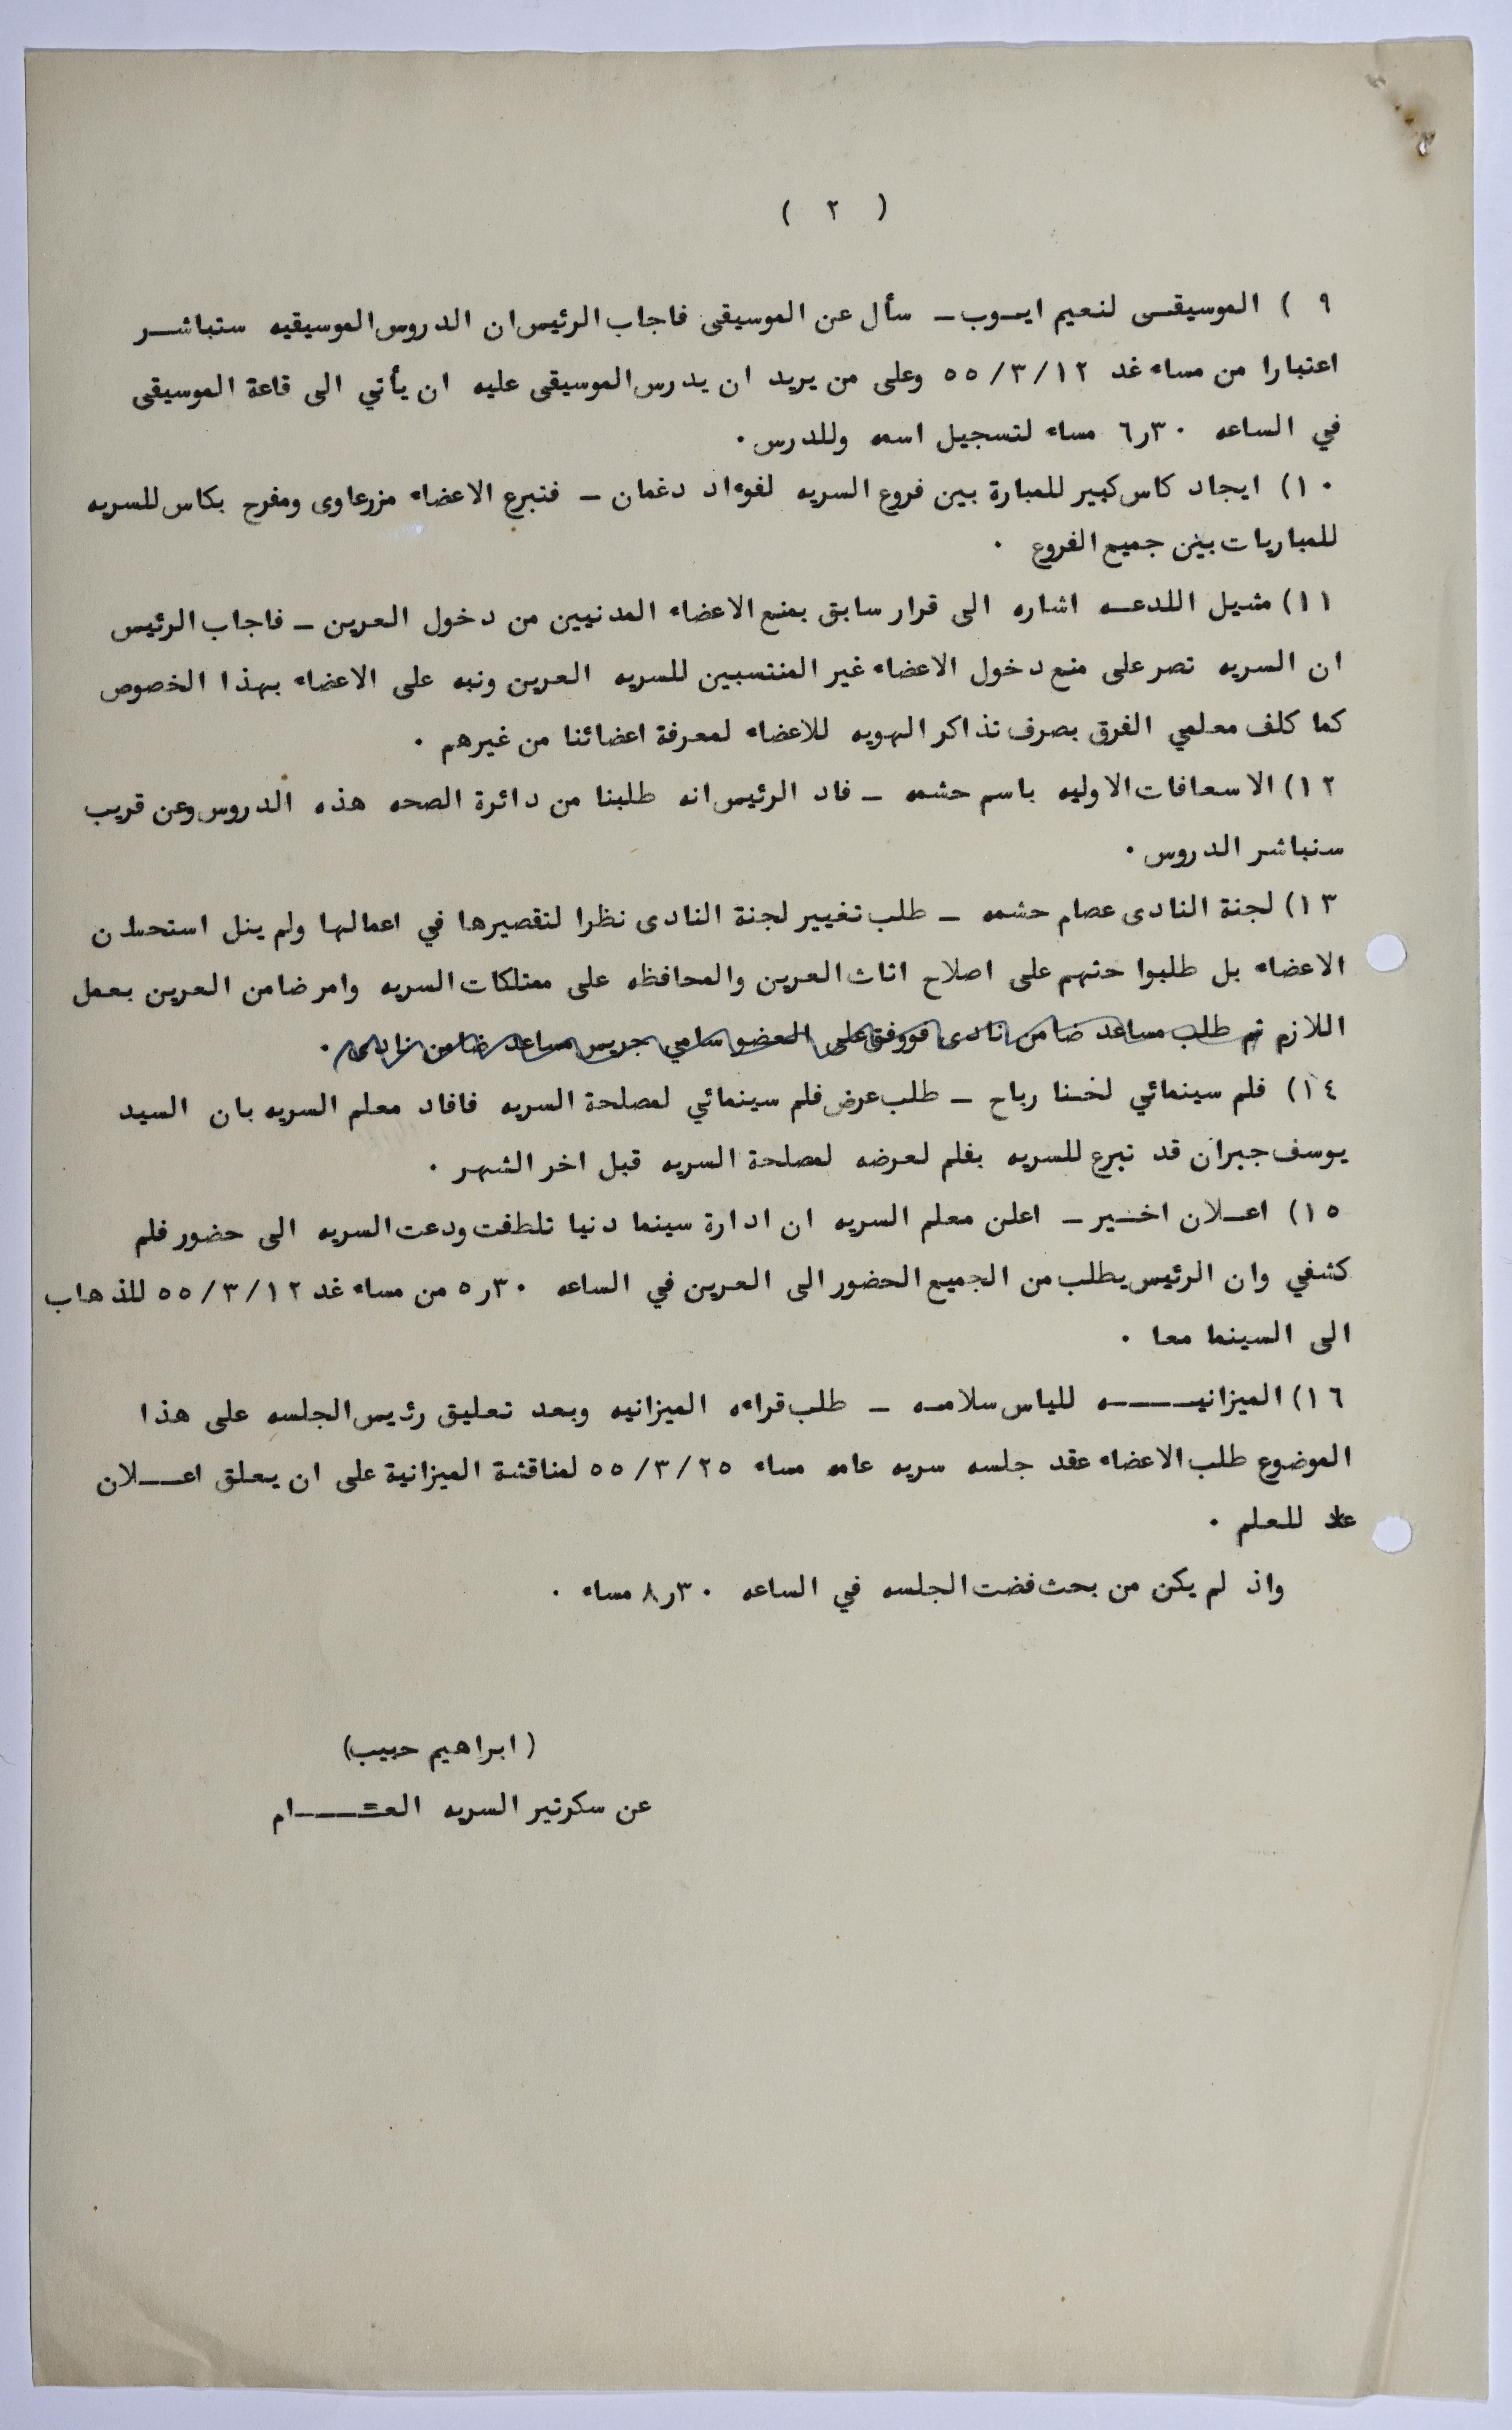 ( ٢ )
٩ ) الموسيقى لنعيم ايوب - سأل عن الموسيقى فاجاب الرئيس ان الدروس الموسيقيه ستباشر
اعتبارا من مساء غد ٥٥/٣/١٢ وعلى من يريد ان يدرس الموسيقى عليه ان يأتي الى قاعة الموسيقى
في الساعه ٦ر٣٠ مساء لتسجيل اسمه وللدرس ٠
١٠) ايجاد كاس كبير للمبارة بين فروع السريه لفوءاد دغمان - فتبرع الاعضاء مزرعاوى ومفرح بكاس للسريه
للمباريات بين جميع الفروع ٠
١١) مشيل اللدعه اشاره الى قرار سابق بمنع الاعضاء المدنيين من دخول العرين - فاجاب الرئيس
ان السريه تصر على منع دخول الاعضاء غير المنتسبين للسريه العرين ونبه على الاعضاء بهذا الخصوص
كما كلف معلمي الفرق بصرف تذاكر الهويه للاعضاء لمعرفة اعضائنا من غيرهم ٠
١٢) الاسعافات الاوليه باسم حشمه - فاد الرئيس انه طلبنا من دائرة الصحه هذه الدروس وعن قريب
سنباشر الدروس ٠
١٣) لجنة النادى عصام حشمه - طلب تغيير لجنة النادى نظرا لتقصيرها في اعمالها ولم ينل استحسان
الاعضاء بل طلبوا حثهم على اصلاح اثاث العرين والمحافظه على ممتلكات السريه وامر ضامن العرين بعمل
اللازم ثم طلب مساعد ضامن نادى فووفق على العضو سامي جريس مساعد ضامن نادى ٠
١٤) فلم سينمائي لحنا رباح - طلب عرض فلم سينمائي لمصلحة السريه فافاد معلم السريه بان السيد
يوسف جبران قد تبرع للسريه بفلم لعرضه لمصلحة السريه قبل اخر الشهر ٠
١٥) اعلان اخير - اعلن معلم السريه ان ادارة سينما دنيا تلطفت ودعت السريه الى حضور فلم
كشفي وان الرئيس يطلب من الجميع الحضور الى العرين في الساعه ٥ر٣٠ من مساء غد ٥٥/٣/١٢ للذهاب
الى السينما معا ٠
١٦) الميزانيه للياس سلامه - طلب قراءه الميزانيه وبعد تعليق رئيس الجلسه على هذا
الموضوع طلب الاعضاء عقد جلسه سريه عامه مساء ٥٥/٣/٢٥ لمناقشة الميزانية على ان يعلق اعلان
للعلم ٠
واذ لم يكن من بحث فضت الجلسه في الساعه ٨ر٣٠ مساء ٠
(ابراهيم حبيب)
عن سكرتير السريه العام